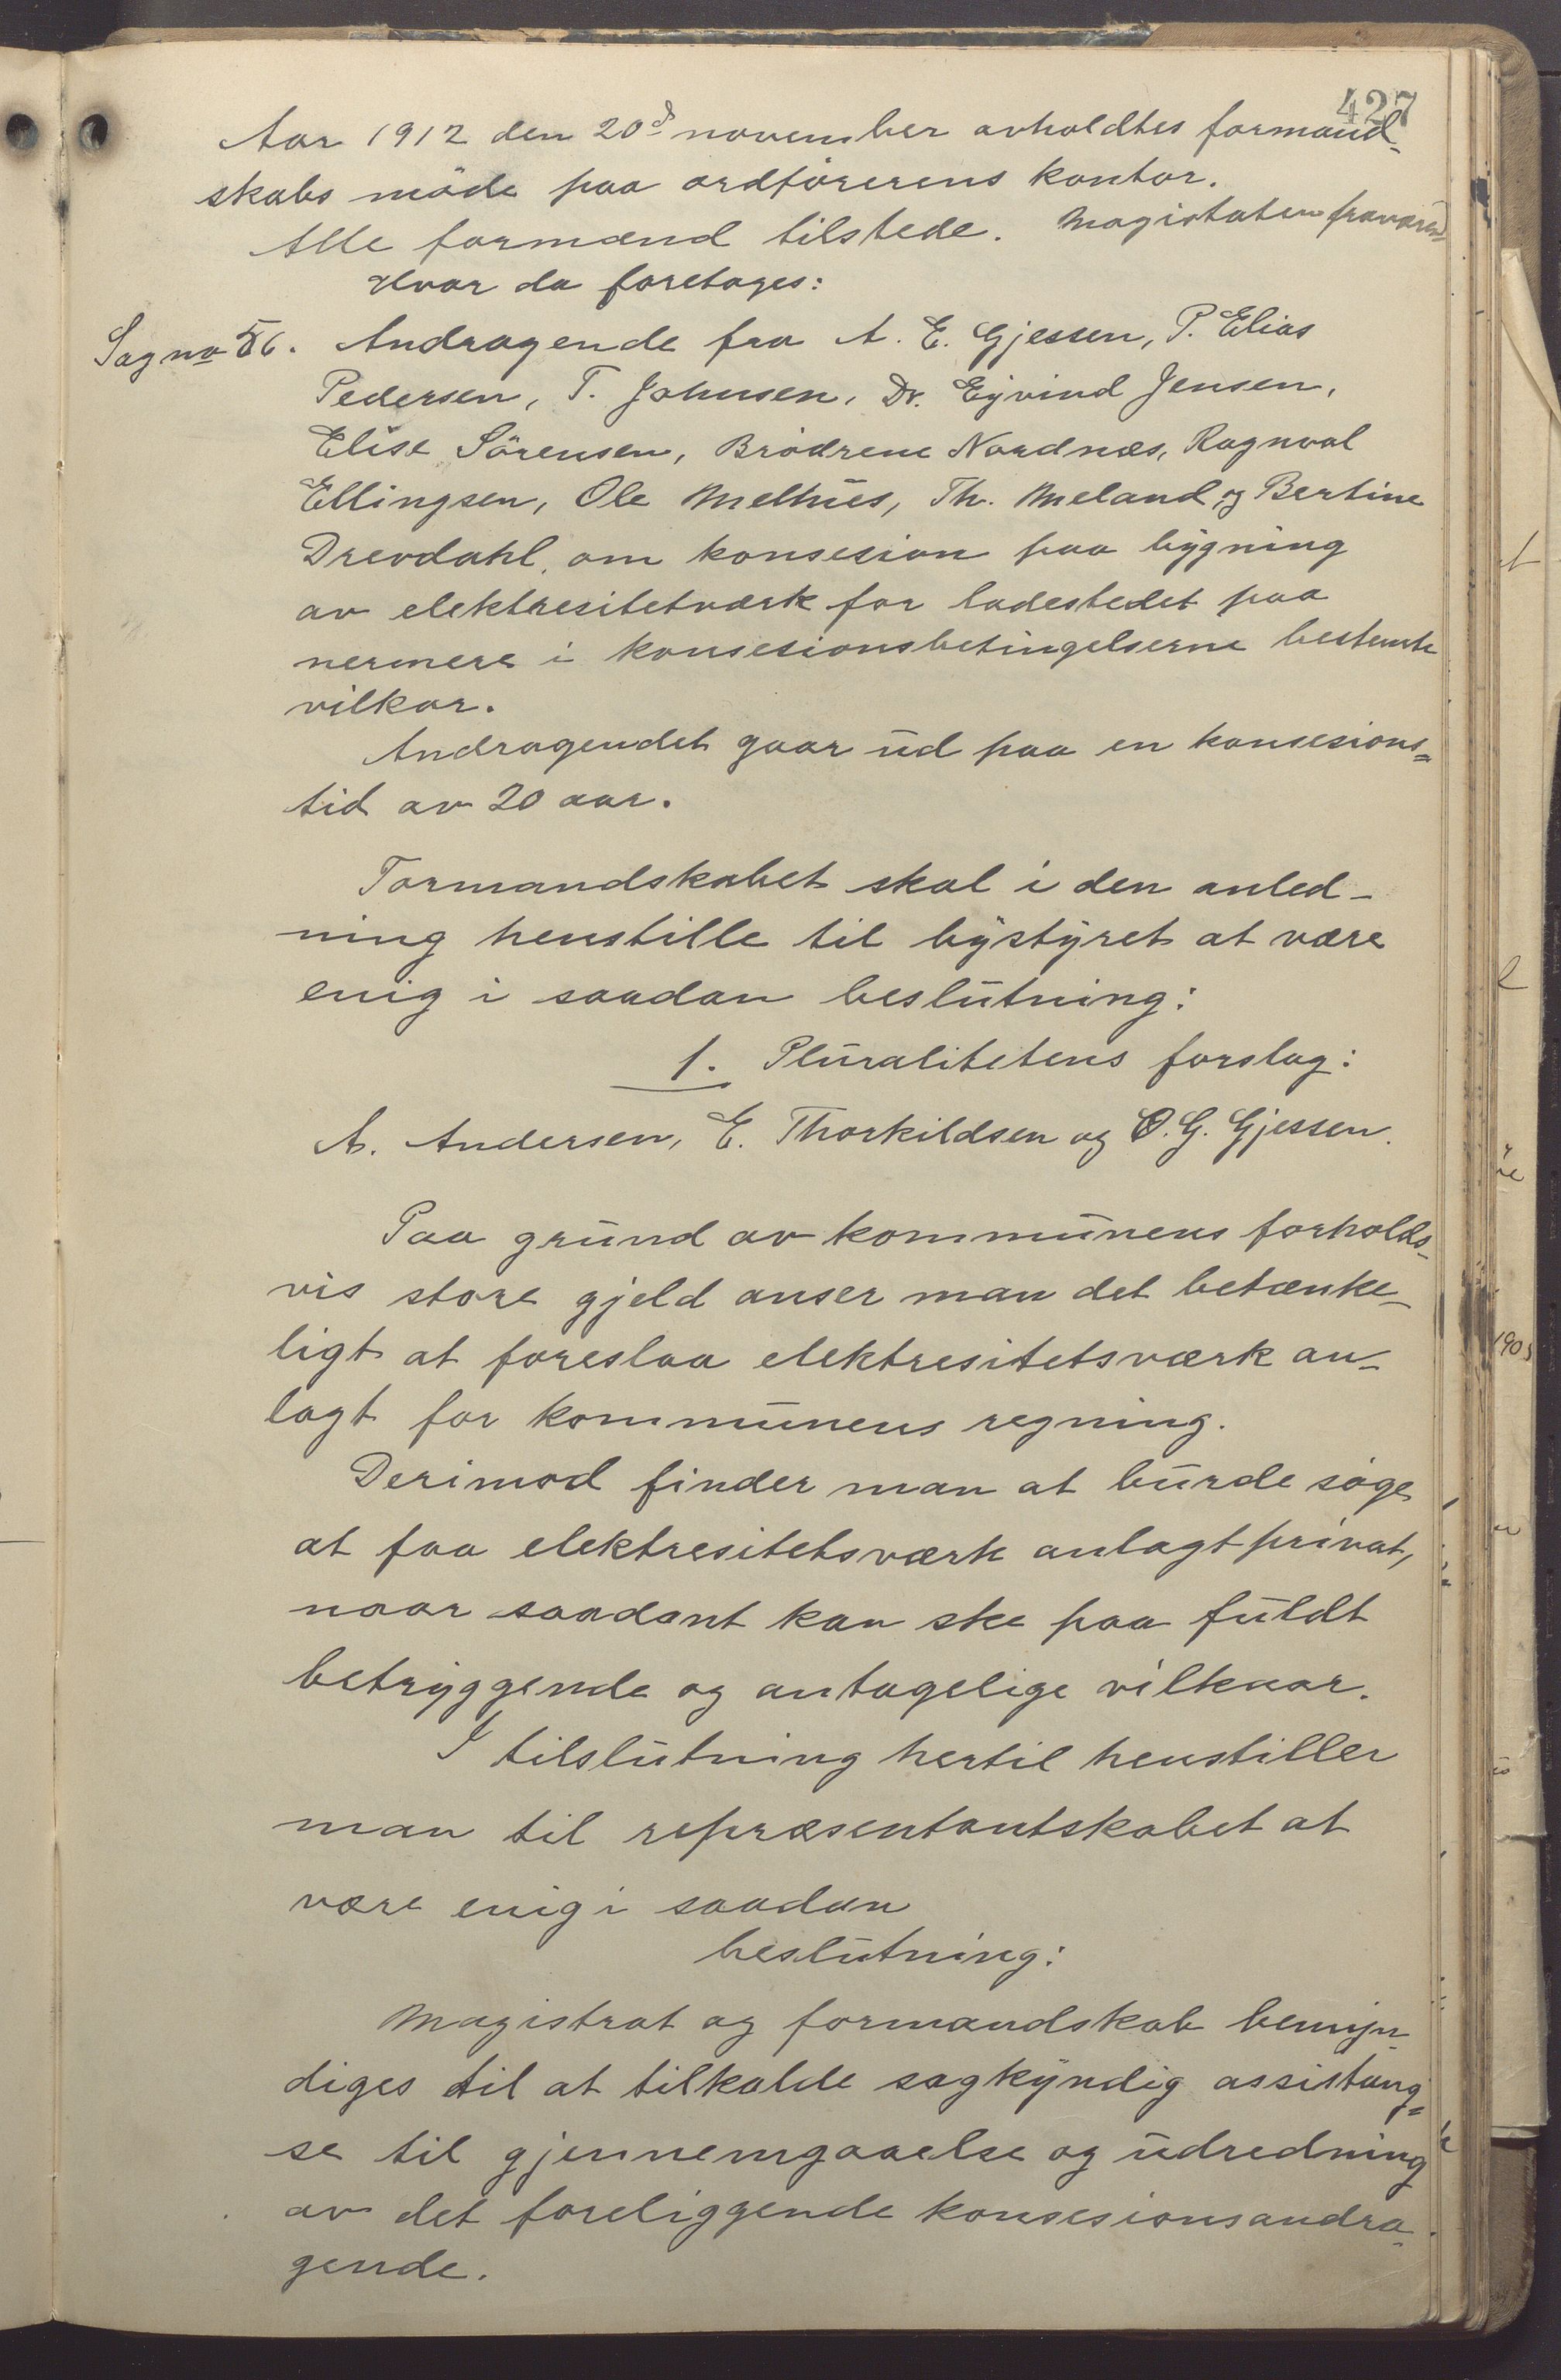 427
Aar 1912 den 20d november avholdtes formand-
skabs möde paa ordförerens kontor.
Alle formænd tilstede. Magistaten fraværen-
Hvor da foretages:
Sag no 56. Andragende fra A. E. Gjessen, P. Elias
Pedersen, T. Johnsen, Dr. Eyvind Jensen,
Elise Sörensen, Brödrene Nordnæs, Ragnval
Ellingsen, Ole Melhus, Th. Meland og Bertine
Drevdahl, om konsesion paa bygning
av elektresitetværk for ladestedet paa
nermere i konsesionsbetingelserne bestemte
vilkar.
Andragendet gaar ud paa en konsesions=
tid av 20 aar.
Formandskabet skal i den anled-
ning henstille til bystyret at være
enig i saadan beslutning:
1. Pluralitetens forslag:
A. Andersen, E. Thorkildsen og O. G. Gjessen.
Paa grund av kommunens forholds-
vis store gjeld anser man det betænke-
ligt at foreslaa elektresitetsværk an-
lagt for kommunens regning.
Derimod finder man at burde söge
at faa elektresitetsværk anlagt privat,
naar saadant kan ske paa fuldt
betryggende og antagelige vilkaar.
I tilslutning hertil henstiller
man til repræsentantskabet at
være enig i saadan
beslutning:
Magistrat og formandskab bemyn-
diges til at tilkalde sagkyndig assistang=
se til gjennemgaaelse og udredning
av det foreliggende konsesionsandra-
gende.